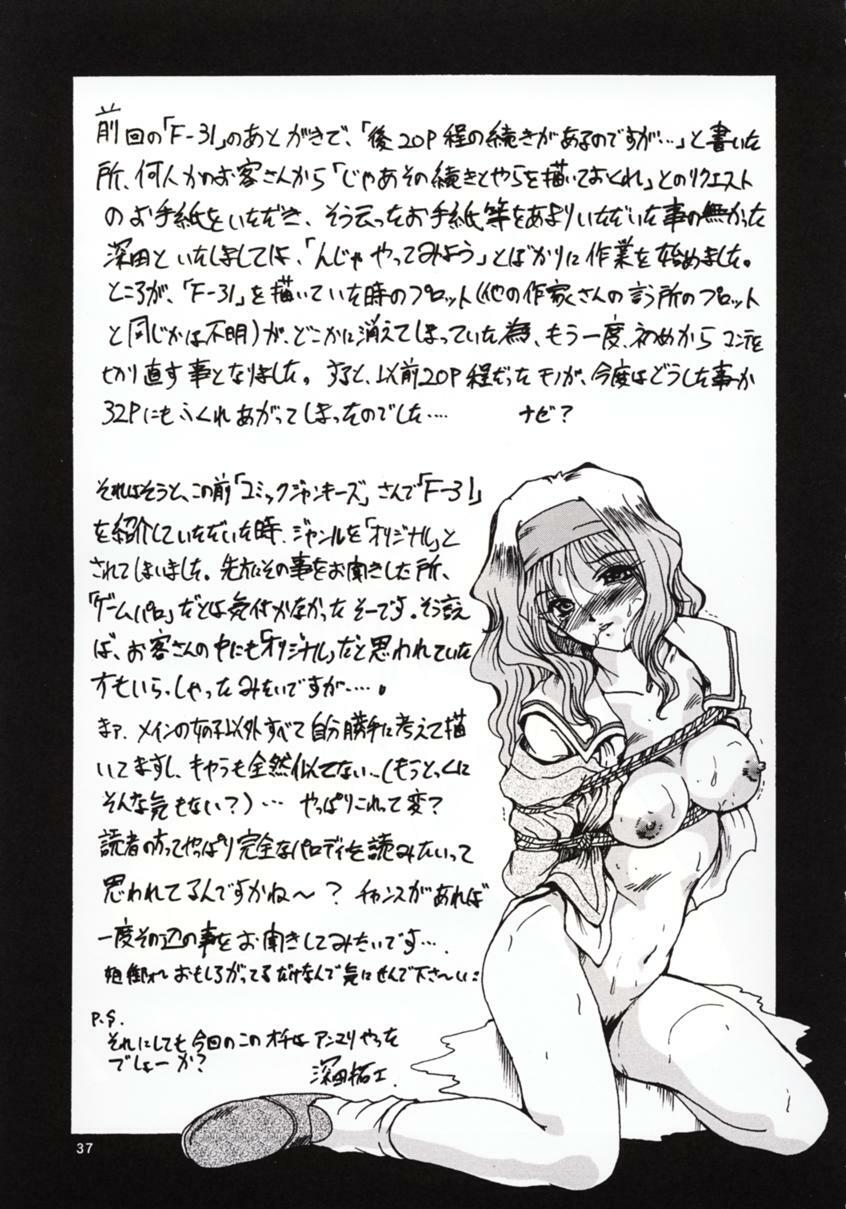 前回の「F-31」のあとがきで、「後20P程の続きがあるのですが…」と書いた
所、何人かのお客さんから「じゃあその続きとやらを描いておくれ」とのリクエスト
のお手紙をいただき、そう云ったお手紙等をあまりいただいた事の無かった
深田といたしましては、「んじゃやってみよう」とばかりに作業を始めました。
ところが、「F-31」を描いていた時のプロット(他の作家さんの言う所のプロット
と同じかは不明)が、どこかに消えてしまっていた為、もう一度、初めからコンテを
切り直す事となりました。すると、以前20P程だったモノが、今度はどうした事か
32Pにもふくれあがってしまったのでした…. ナゼ?
それはそうと、この前「コミックジャンキーズ」さんで「F-31」
を紹介していただいた時、ジャンルを「オリジナル」と
されてしまいました。先方にその事をお聞きした所、
「ゲームパロ」だとは気付かなかったそーです。そう言え
ば、お客さんの中にも「オリジナル」だと思われていた
方もいらっしゃったみたいですが….。
まァ、メインの女の子以外すべて自分勝手に考えて描
いてますし、キャラも全然似てない…(もうとっくに
そんな気もない?)… やっぱりこれって変?
読者の方ってやっぱり完全なパロディを読みたいって
思われてるんですかね〜? チャンスがあれば
一度その辺の事をお聞きしてみたいです….
おもしろがってるだけなんで気にせんで下さ〜い:
P.S.
それにしても今回のこのオチはアンマリやった
でしょーか?
深田拓士.
37